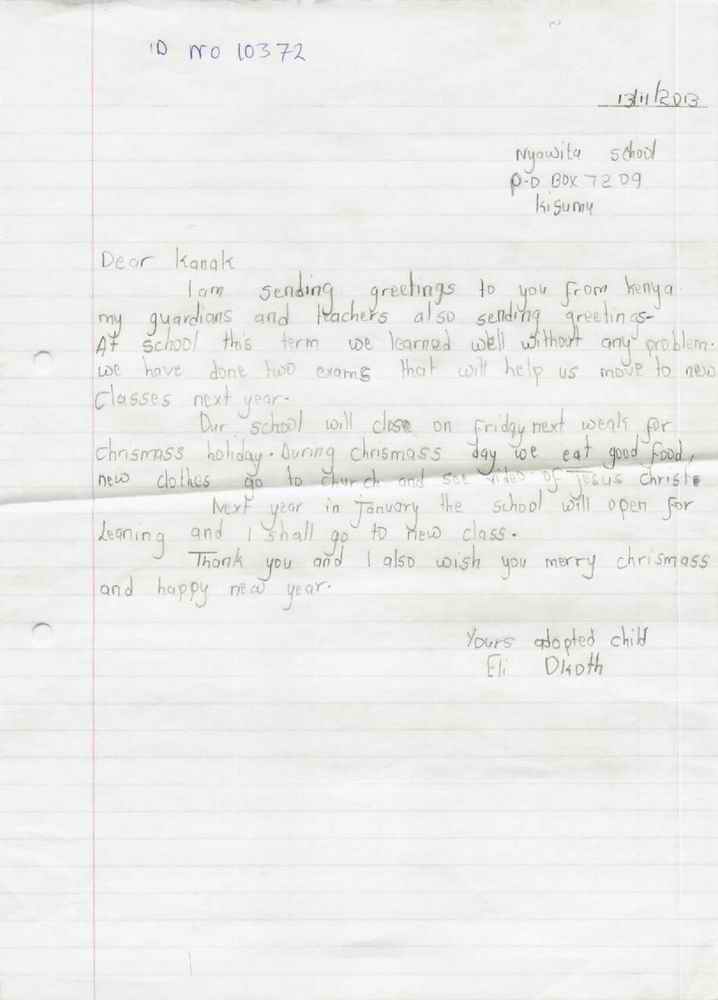 ID NO 10372
13/11/2013
Nyawita School
P.O BOX 7209
Kisumu
Dear Kanak
I am sending greetings to you from Kenya.
my guardians and teachers also sending greetings.
At school this term we learned well without any problem.
we have done two exams that will help us move to new
Classes next year.
Our school will close on Friday next weak for
chrismass holiday. During chrismass day we eat good food,
new clothes go to church and see video of Jesus Christ.
Next year in January the school will open for
Leaning and I shall go to new class.
Thank you and I also wish you merry chrismass
and happy new year.
Yours adopted child
Eli Okoth